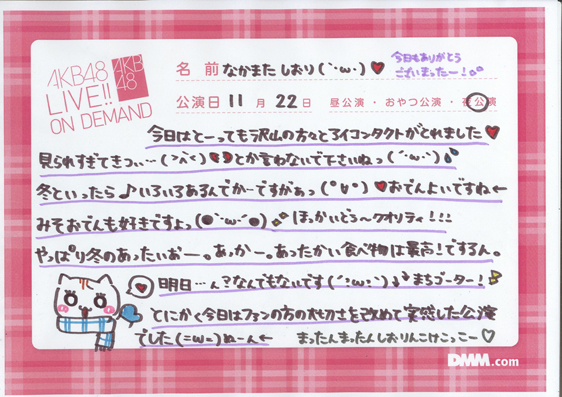 AKB48
LIVE!!
ON DEMAND
AKB
48
名 前 なかまた しおり (´･ω･`) ♥
今日もありがとう
ございまったー!
公演日 11 月 22 日 昼公演・おやつ公演・夜公演
今日はとーっても沢山の方々とアイコンタクトがとれました♥
見られすぎてきつぃ…(>д<)とか言わないで下さいねっ(´･ω･`)
冬といったら♪いろいろあるんでか…ですがぁっ(°∀°)♥おでんよいですね←
みそおでんも好きですよっ(●´･ω･`●) ほっかいどう〜クオリティ!!!
やっぱり冬のあったぃおー。あっかー。あったかい食べ物は最高!でするん。
♥ 明日…ん?なんでもないです(´･ω･`)♪まちゴーター!
とにかく今日はファンの方の大切さを改めて実感した公演
でした(=ω=)ぬーん← まったんまったんしおりんこけこっこー♡
DMM.com